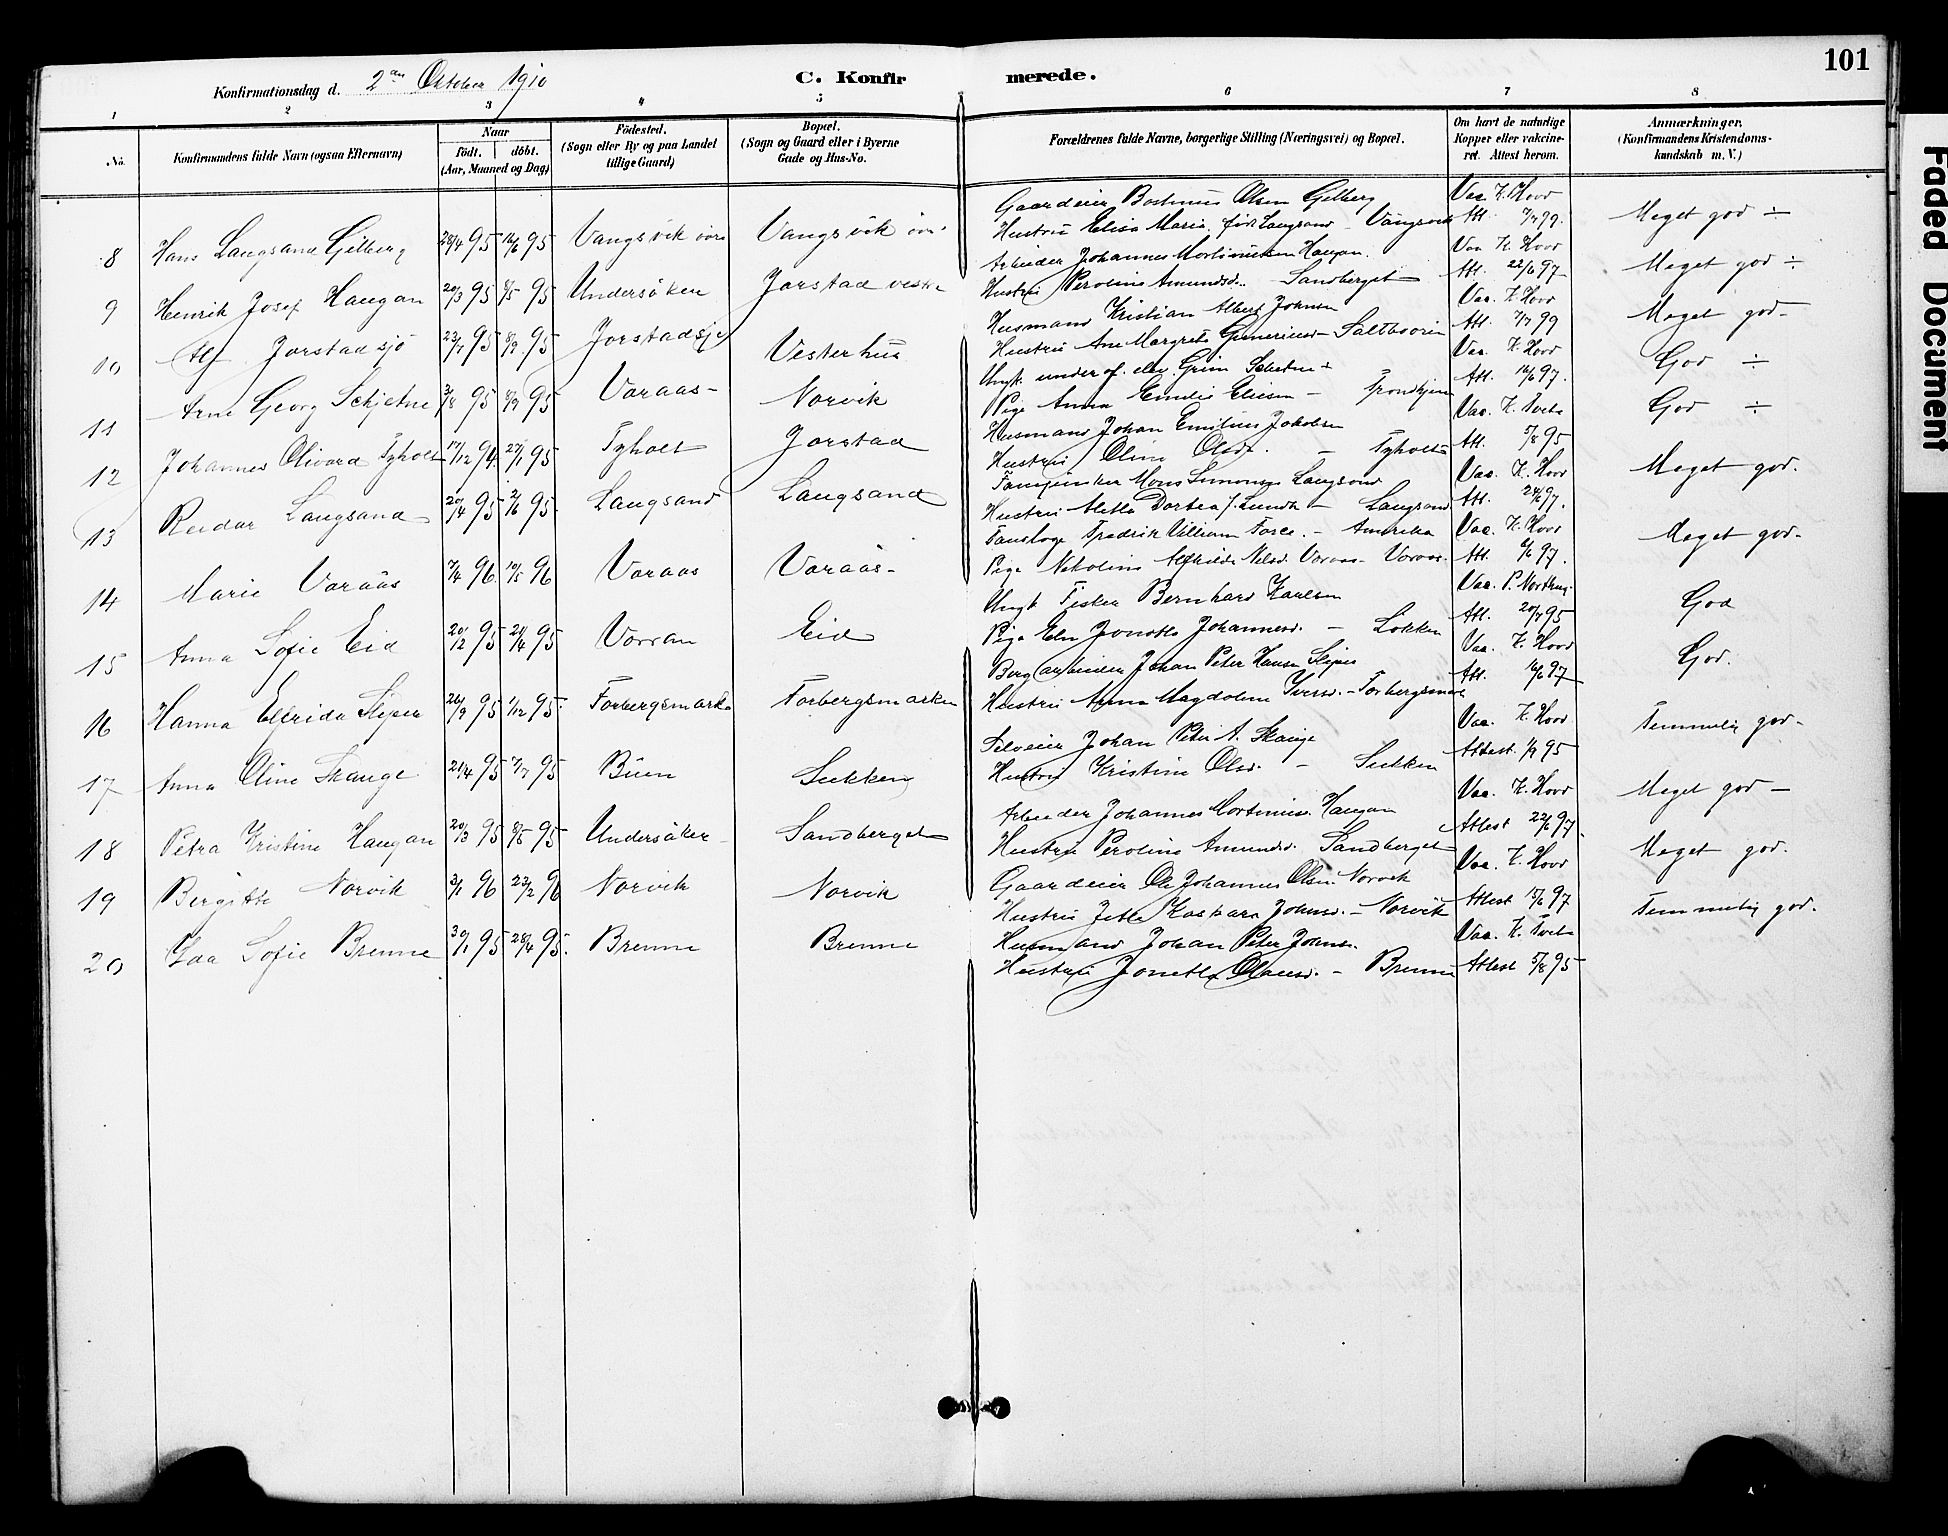 101
Konfirmationsdag d. 2den Oktober 1910
C. Konfirmerede.
1 2 3 4 5 6 7 8
No.
Konfirmandens fulde Navn (ogsaa Efternavn)
Naar
født. døbt.
(Aar, Maaned og Dag)
Födested.
(Sogn eller By og paa Landet
tillige Gaard)
Bopæl.
(Sogn og Gaard eller i Byerne
Gade og Hus-No.
Forældrenes fulde Navne, borgerlige Stilling (Næringsvei) og Bopæl.
Om havt de naturlige
Kopper eller vakcine-
ret. Attest herom.
Anmærkninger.
(Konfirmandens Kristendoms-
kundskab m. V.)
8 Hans Langsand Gilberg 95 95 Vangsvik Vangsvik
Gaardeier Olsen Gilberg
Hustru Elisa Maria født Langsand - Vangsvik
Vac. K. Hovd
Att. 7/7 99.
Meget god ÷
9 Henrik Josef Haugan 20/3 95 95 Undersåker Jorstad
Arbeider Johannes Haugan
Hustru Peroline Amundsd. Sandberget
Vac K. Hovd
Att. 22/6 97
Meget god ÷
10 Alf Jorstadsjø 23/7 95 8/9 95 Jorstadsjø Vesterhus
Husmand Kristian Albert Johnsen
Hustru Ane Margrete
Vac. K. Hovd
Att. 7/7 99
Meget god -
11 Arne Georg Schjetne 3/8 95 8/9 95 Voraas - Norvik
Ungk. Grim
Pige Anna Emilie - Trondhjem
Vac. K. Hovd
Att. 97.
God ÷
12 Johannes Olivard Tyholt 17/12 94. 27/1 95 Tyholt Jorstad
Husmand Johan Emilius Jakobsen
Hustru Oline Olsd. - Tyholt
Vac. K. Tveta
Att. 5/8 95
God ÷
13 Reidar Langsand 20/4 95 2/6 95 Langsand Langsand
Mons Simonsen Langsand
Hustru Dortea f. Lunda - Langsand
Vac. K. Hovd
Att. 97.
Meget god.
14 Marie Voraas 7/4 96 10/5 96 Voraas Voraas -
Fredrik Villiam - Amerika
Pige Nikoline Nilsd. Voraas - Voraas.
Vac. K. Hovd
Att. 97.
Meget god.
15 Anna Sofie Eid 20/12 95 21/4 95 Vorran Eid
Ungk Fisker Bernhard Karlsen
Pige Johannesd. - Lökken
Vac. P. Northug.
Att. 20/7 95
God
16 Hanna Elfrida 26/9 95 1/12 95. Forbergsmarka Forbergsmarken
Bergarbeider Johan Peter Hansen
Hustru Anna Magdalena Iversd. - Forbergsmark
Vac. K. Hovd
Att. 97
God.
17 Anna Oline Skauge 21/4 95 7/7 95 Buen Sukken
Selveier Johan Peter A. Skauge
Hustru Kristine Olsd. - Sukken
Vac. K. Hovd
Attest 1/9 95
Temmelig god -
18 Petra Kristine Haugan 20/3 95 95 Undersåker - Sandberget
Arbeider Johannes Mortinius. Haugan
Hustru Peroline Amundsd. Sandberget
Vac. K. Hovd
Attest 22/6 97.
Meget god -
19 Bergitte Norvik 3/1 96 23/2 96 Norvik Norvik
Gaardeier Ole Johannes Olsen Norvik
Hustru Kaspara Johnsd. - Norvik
Vac. K. Hovd
Attest 97
Meget god.
20 Sofie Brenne 30/1 95 28/4 95. Brenne Brenne
Husmand Johan Peter Johns.
Hustru Jonetta Olausd. - Brenne
Vac. K. Tveta
Attest 5/8 95
Temmelig god.
Faded Document